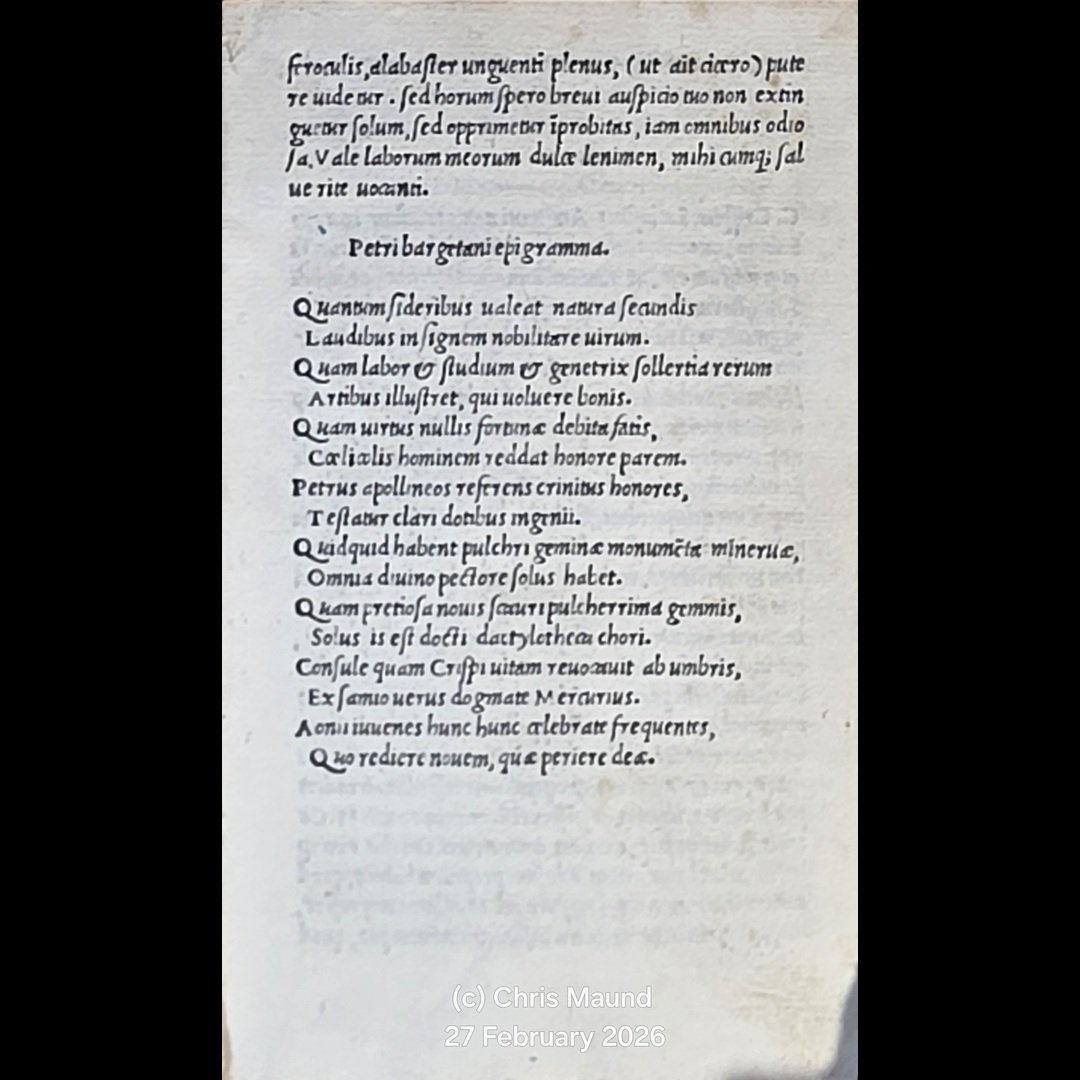 ferculis, alabaster unguenti plenus, (ut ait cicero) pute
re uidetur. sed horum spero breui auspicio tuo non extin
guetur solum, sed opprimetur īprobitas, iam omnibus odio
sa. Vale laborum meorum dulce lenimen, mihi cumq; sal
ue rite uocanti.
Petri bargetani epigramma.
Quantum sideribus ualeat natura secundis
Laudibus insignem nobilitare uirum.
Quam labor & studium & genetrix sollertia rerum
Artibus illustret, qui uoluere bonis.
Quam uirtus nullis fortunæ debita fatis,
Cœlicœlis hominem reddat honore parem.
Petrus apollineos referens crinitus honores,
Testatur clari dotibus ingenii.
Quidquid habent pulchri geminæ monumēta mineruæ,
Omnia diuino pectore solus habet.
Quam pretiosa nouis scaturi pulcherrima gemmis,
Solus is est docti dactylotheca chori.
Consule quam Crispi uitam reuocauit ab umbris,
Ex samio uerus dogmate Mercurius.
Aonii iuuenes hunc hunc celebrate frequentes,
Quo rediere nouem, quæ periere deæ.
(c) Chris Maund
27 February 2026